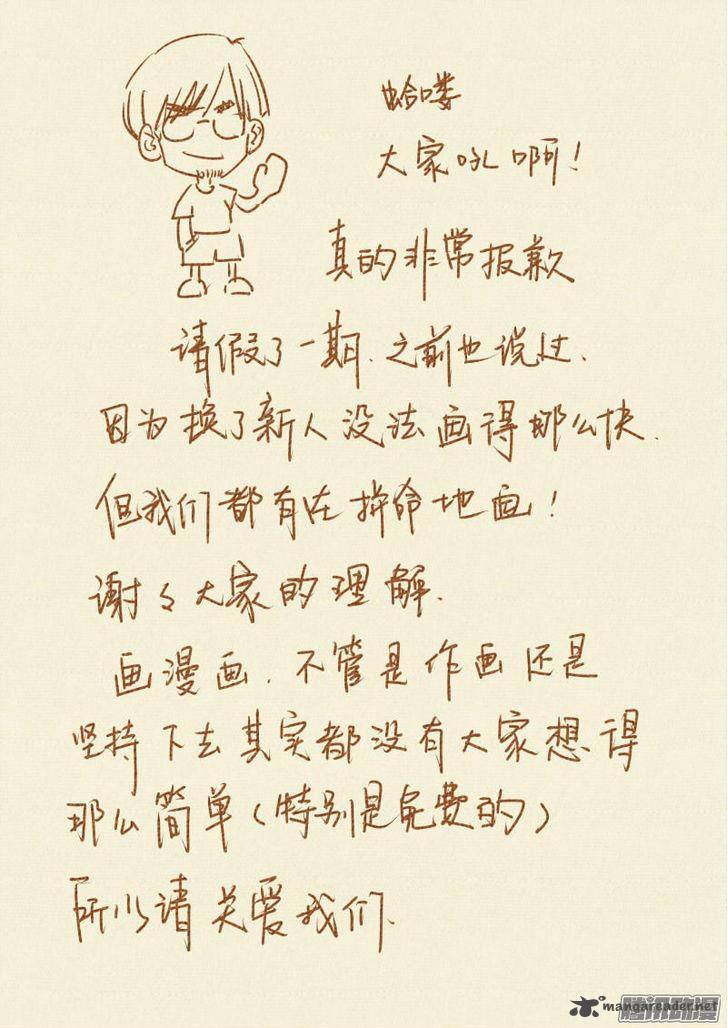 蛤喽
大家吼啊!
真的非常报歉
请假了一期.之前也说过.
因为换了新人没法画得那么快.
但我们都有在拼命地画!
谢々大家的理解.
画漫画.不管是作画还是
坚持下去其实都没有大家想得
那么简单(特别是免费的)
所以请关爱我们.
mangareader.net
腾讯动漫